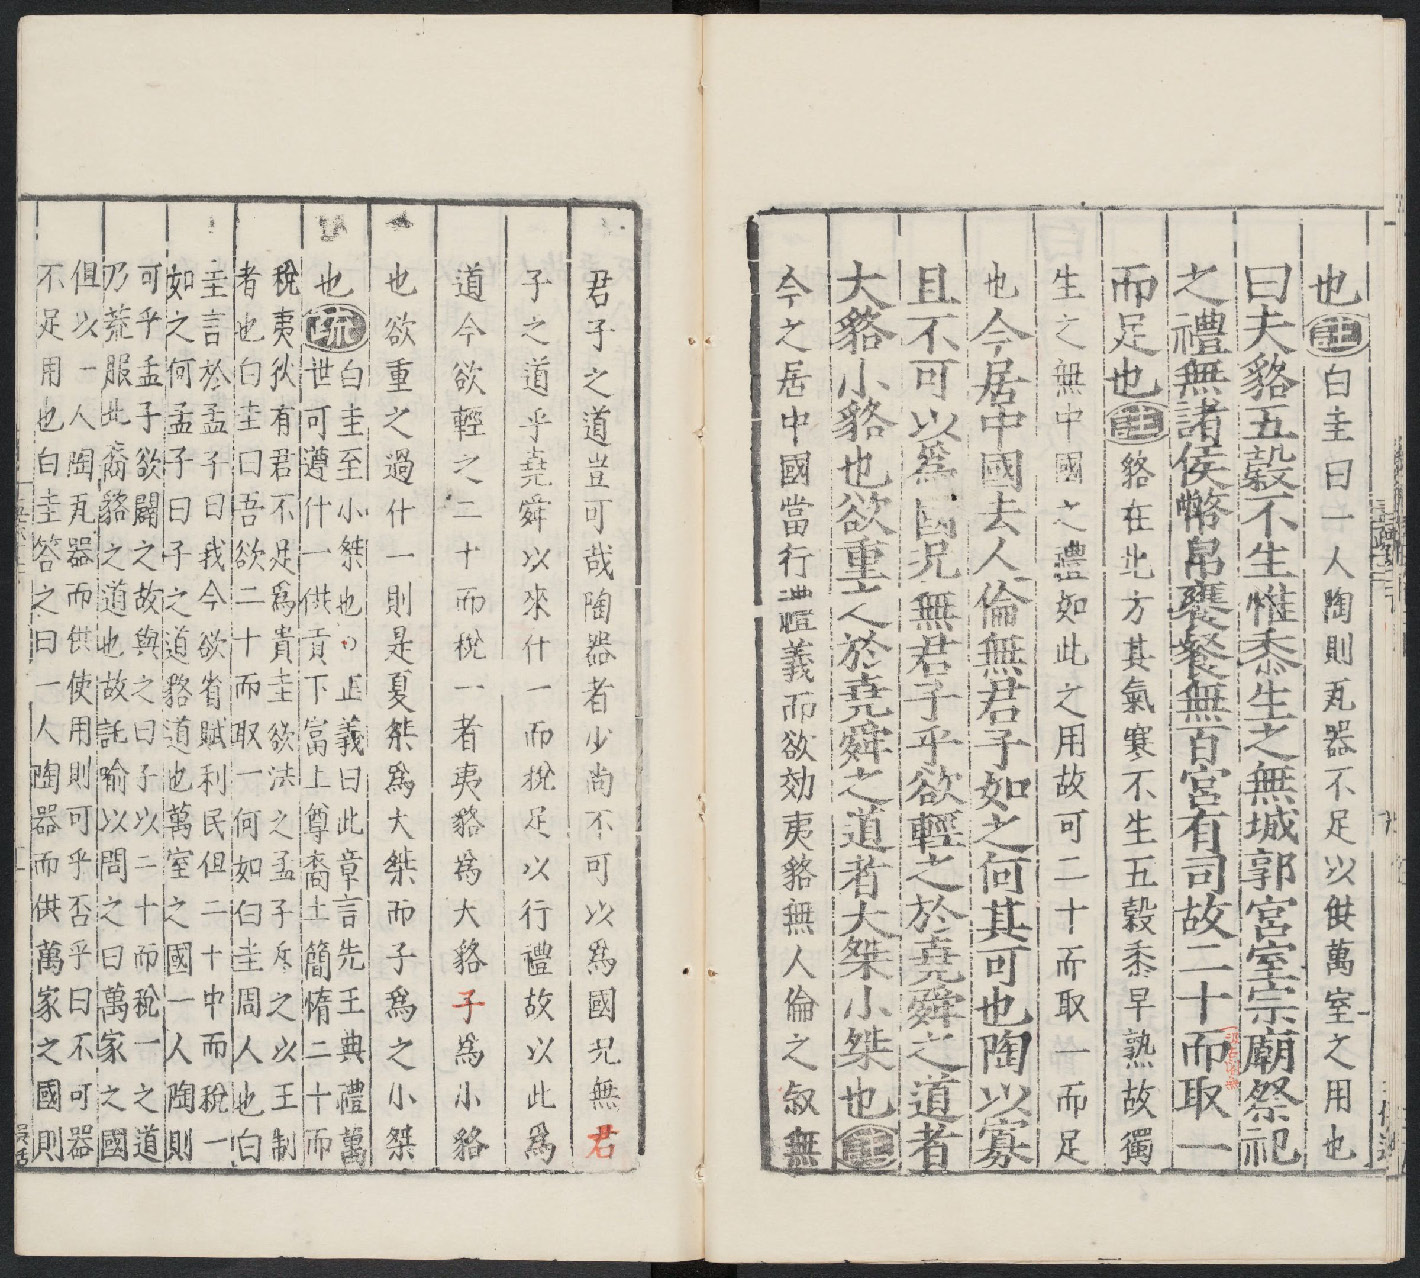 也註白圭曰一人陶則瓦器不足以供萬室之用也
曰夫貉五穀不生惟黍生之無城郭宮室宗廟祭祀
之禮無諸侯幣帛饔餐無百官有司故二十而取一
而足也註貉在北方其氣寒不生五穀黍早熟故獨
生之無中國之禮如此之用故可二十而取一而足
也今居中國去人倫無君子如之何其可也陶以寡
且不可以爲國况無君子乎欲輕之於堯舜之道者
大貉小貉也欲重之於堯舜之道者大桀小桀也註
今之居中國當行禮義而欲効夷貉無人倫之叙無
君子之道豈可哉陶器者少尚不可以爲國况無君
子之道乎堯舜以來什一而稅足以行禮故以此爲
道今欲輕之二十而稅一者夷貉爲大貉子爲小貉
也欲重之過什一則是夏桀爲大桀而子爲之小桀
也疏白圭至小桀也○正義曰此章言先王典禮萬
世可遵什一供貢下富上尊裔土簡惰二十而
稅夷狄有君不足爲貴圭欲法之孟子斥之以王制
者也白圭曰吾欲二十而取一何如白圭周人也白
圭言於孟子曰我今欲省賦利民但二十中而稅一
如之何孟子曰子之道貉道也萬室之國一人陶則
可乎孟子欲闢之故與之曰子以二十而稅一之道
乃荒服北裔貉之道也故託喻以問之曰萬家之國
但以一人陶瓦器而供使用則可乎否乎曰不可器
不足用也白圭答之曰一人陶器而供萬家之國則